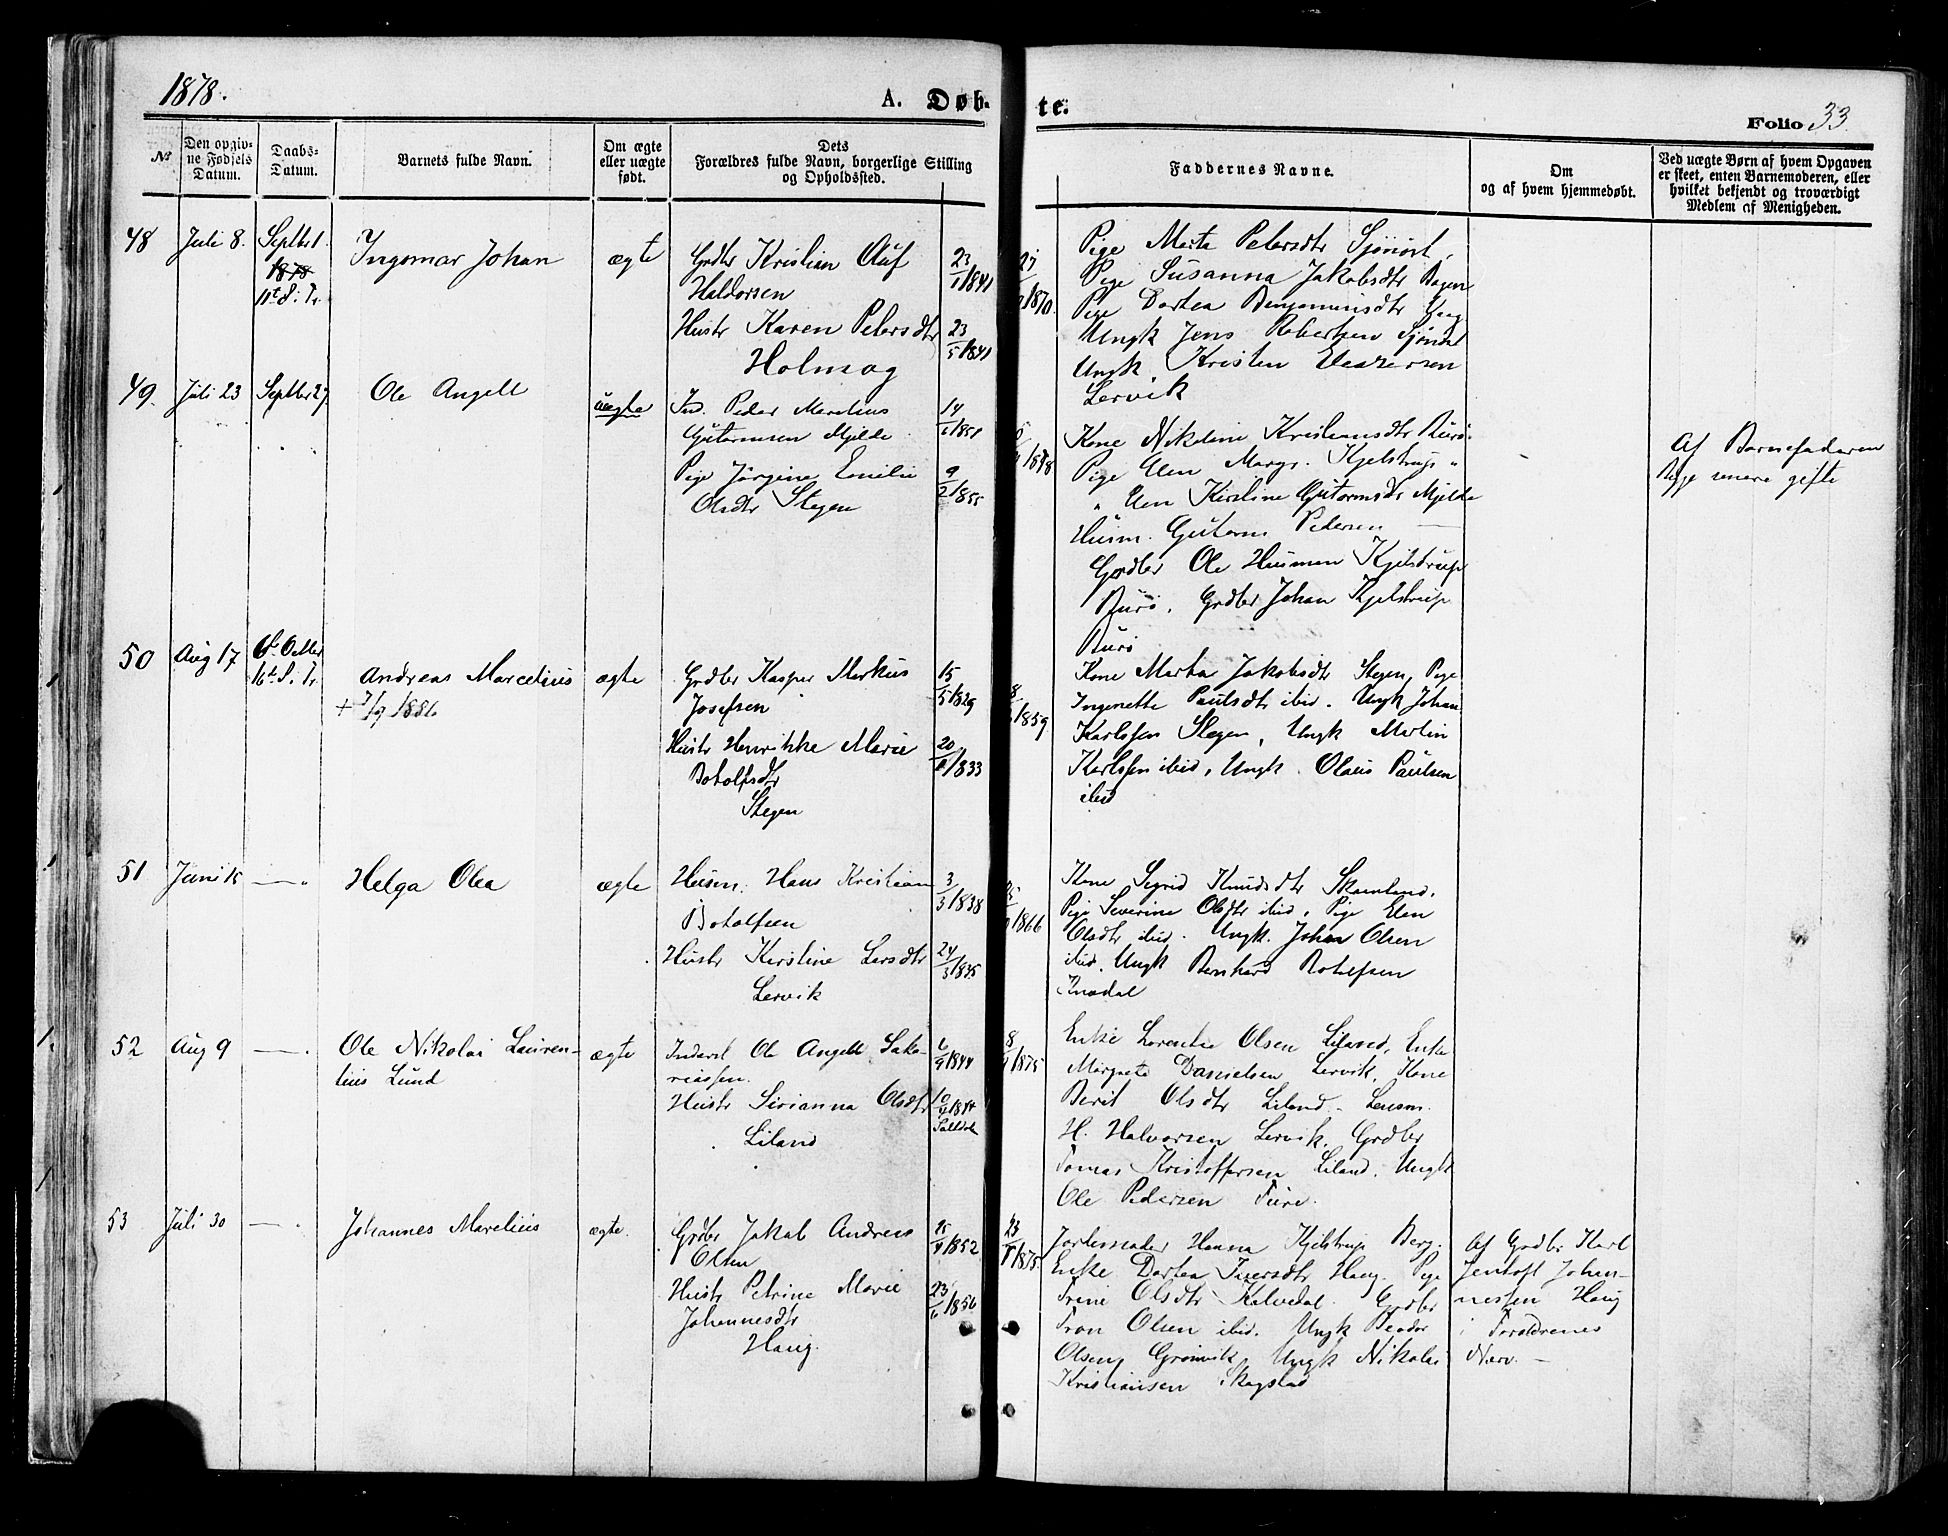 1878.
A. Døb-
te.
Folio 33.
№
Den opgiv-
ne Fødsels
Datum.
Daabs-
Datum.
Barnets fulde Navn.
Om ægte
eller uægte
født.
Dets
Forældres fulde Navn, borgerlige Stilling
og Opholdssted.
Faddernes Navne.
Om
og af hvem hjemmedøbt.
Ved uægte Børn af hvem Opgaven
er skeet, enten Barnemoderen, eller
hvilket bekjendt og troværdigt
Medlem af Menigheden.
48
Juli 8.
Septbr 1.
1878
11te S. Tr.
Ingomar Johan
ægte
Grdbr Kristian Oluf
Haldorsen
Hustr Karen Petersdtr
Holmag
23/1 1841
23/5 1841
27/ 1870.
Pige Marta Petersdtr Sjønist,
Pige Susanna Jakobsdtr Bogen
Pige Dortea Benjaminsdtr Haug
Ungk Jens Robertsen Sjønist
Ungk Kristen
Lervik
49.
Juli 23
Septbr 27
Ole Angell
uægte
Ind. Peder Marelius
Gutormsen Mjelde
Pige Jørgine Emilie
Olsdtr Stegen
14/6 1851
9/2 1855
1878
Kone Nikoline Kristiansdtr Burø.
Pige Elen Margr. Kjelstrup "
" Elen Kirstine Gutormsdtr Mjelde
Husm. Gutorm Pedersen —
Grdbr Ole Husmen Kjelstrup
Burø. Grdbr Johan Kjelstrup
Burø
Af Barnefaderen
Begge senere gifte
50
Aug 17
6te Octbr
16te S. Tr.
Andreas Marcelius
+ 3/9 1886
ægte
Grdbr Kasper Markus
Josefsen
Hustr Henrikke Marie
Botolfsdtr
Stegen
15/5 1829
20/ 1833
8/ 1859
Kone Marta Jakobsdtr Stegen, Pige
Ingenette Paulsdtr ibid. Ungk Johan
Karlssen Stegen, Ungk Martin
Karlssen ibid, Ungk. Olaus Paulsen
ibid
51
Juni 15
—
Helga Olea
ægte
Husm. Hans Kristian
Botolfsen
Hustr Kirstine Larsdtr
Lervik
3/3 1838
24/3 1835
1866
Kone Sigrid Knudsdtr Skomland,
Pige Severine Olsdtr ibid, Pige Elen
Olsdtr ibid. Ungk. Johan Olsen
ibid, Ungk Bernhard Botolfsen
52
Aug 9
—
Ole Nikolai Lauren-
tius Lund
ægte
Inderst Ole Angell Saka-
riassen.
Hustr Sirianna Olsdtr
Liland
6/9 1844
10/ 18
8/ 1875
Enke Lorentse Olsen Liland, Enke
Margrete Danielsen Lervik, Kone
Berit Olsdtr Liland. Lensm.
H. Halvorsen Lervik. Grdbr
Tomas Kristoffersen Liland. Ungk
Ole Pedersen Fure.
53
Juli 30
—
Johannes Marelius
ægte.
Grdbr Jakob Andreas
Olsen
Hustr Petrine Marie
Johannesdtr
Haug.
1852
23/6 1856
23/ 1875.
Jordemoder Hanna Kjelstrup Berg.
Enke Dortea Iversdtr Haug. Pige
Trine Olsdtr Kelvedal. Grdbr
Tron Olsen ibid. Ungk Peador
Olsen Grønvik, Ungk Nikolai
Kristiansen Skogstad
Af Grdbr. Karl
Jentoft Johan-
nessen Haug
i Forældrenes
Nærv. —